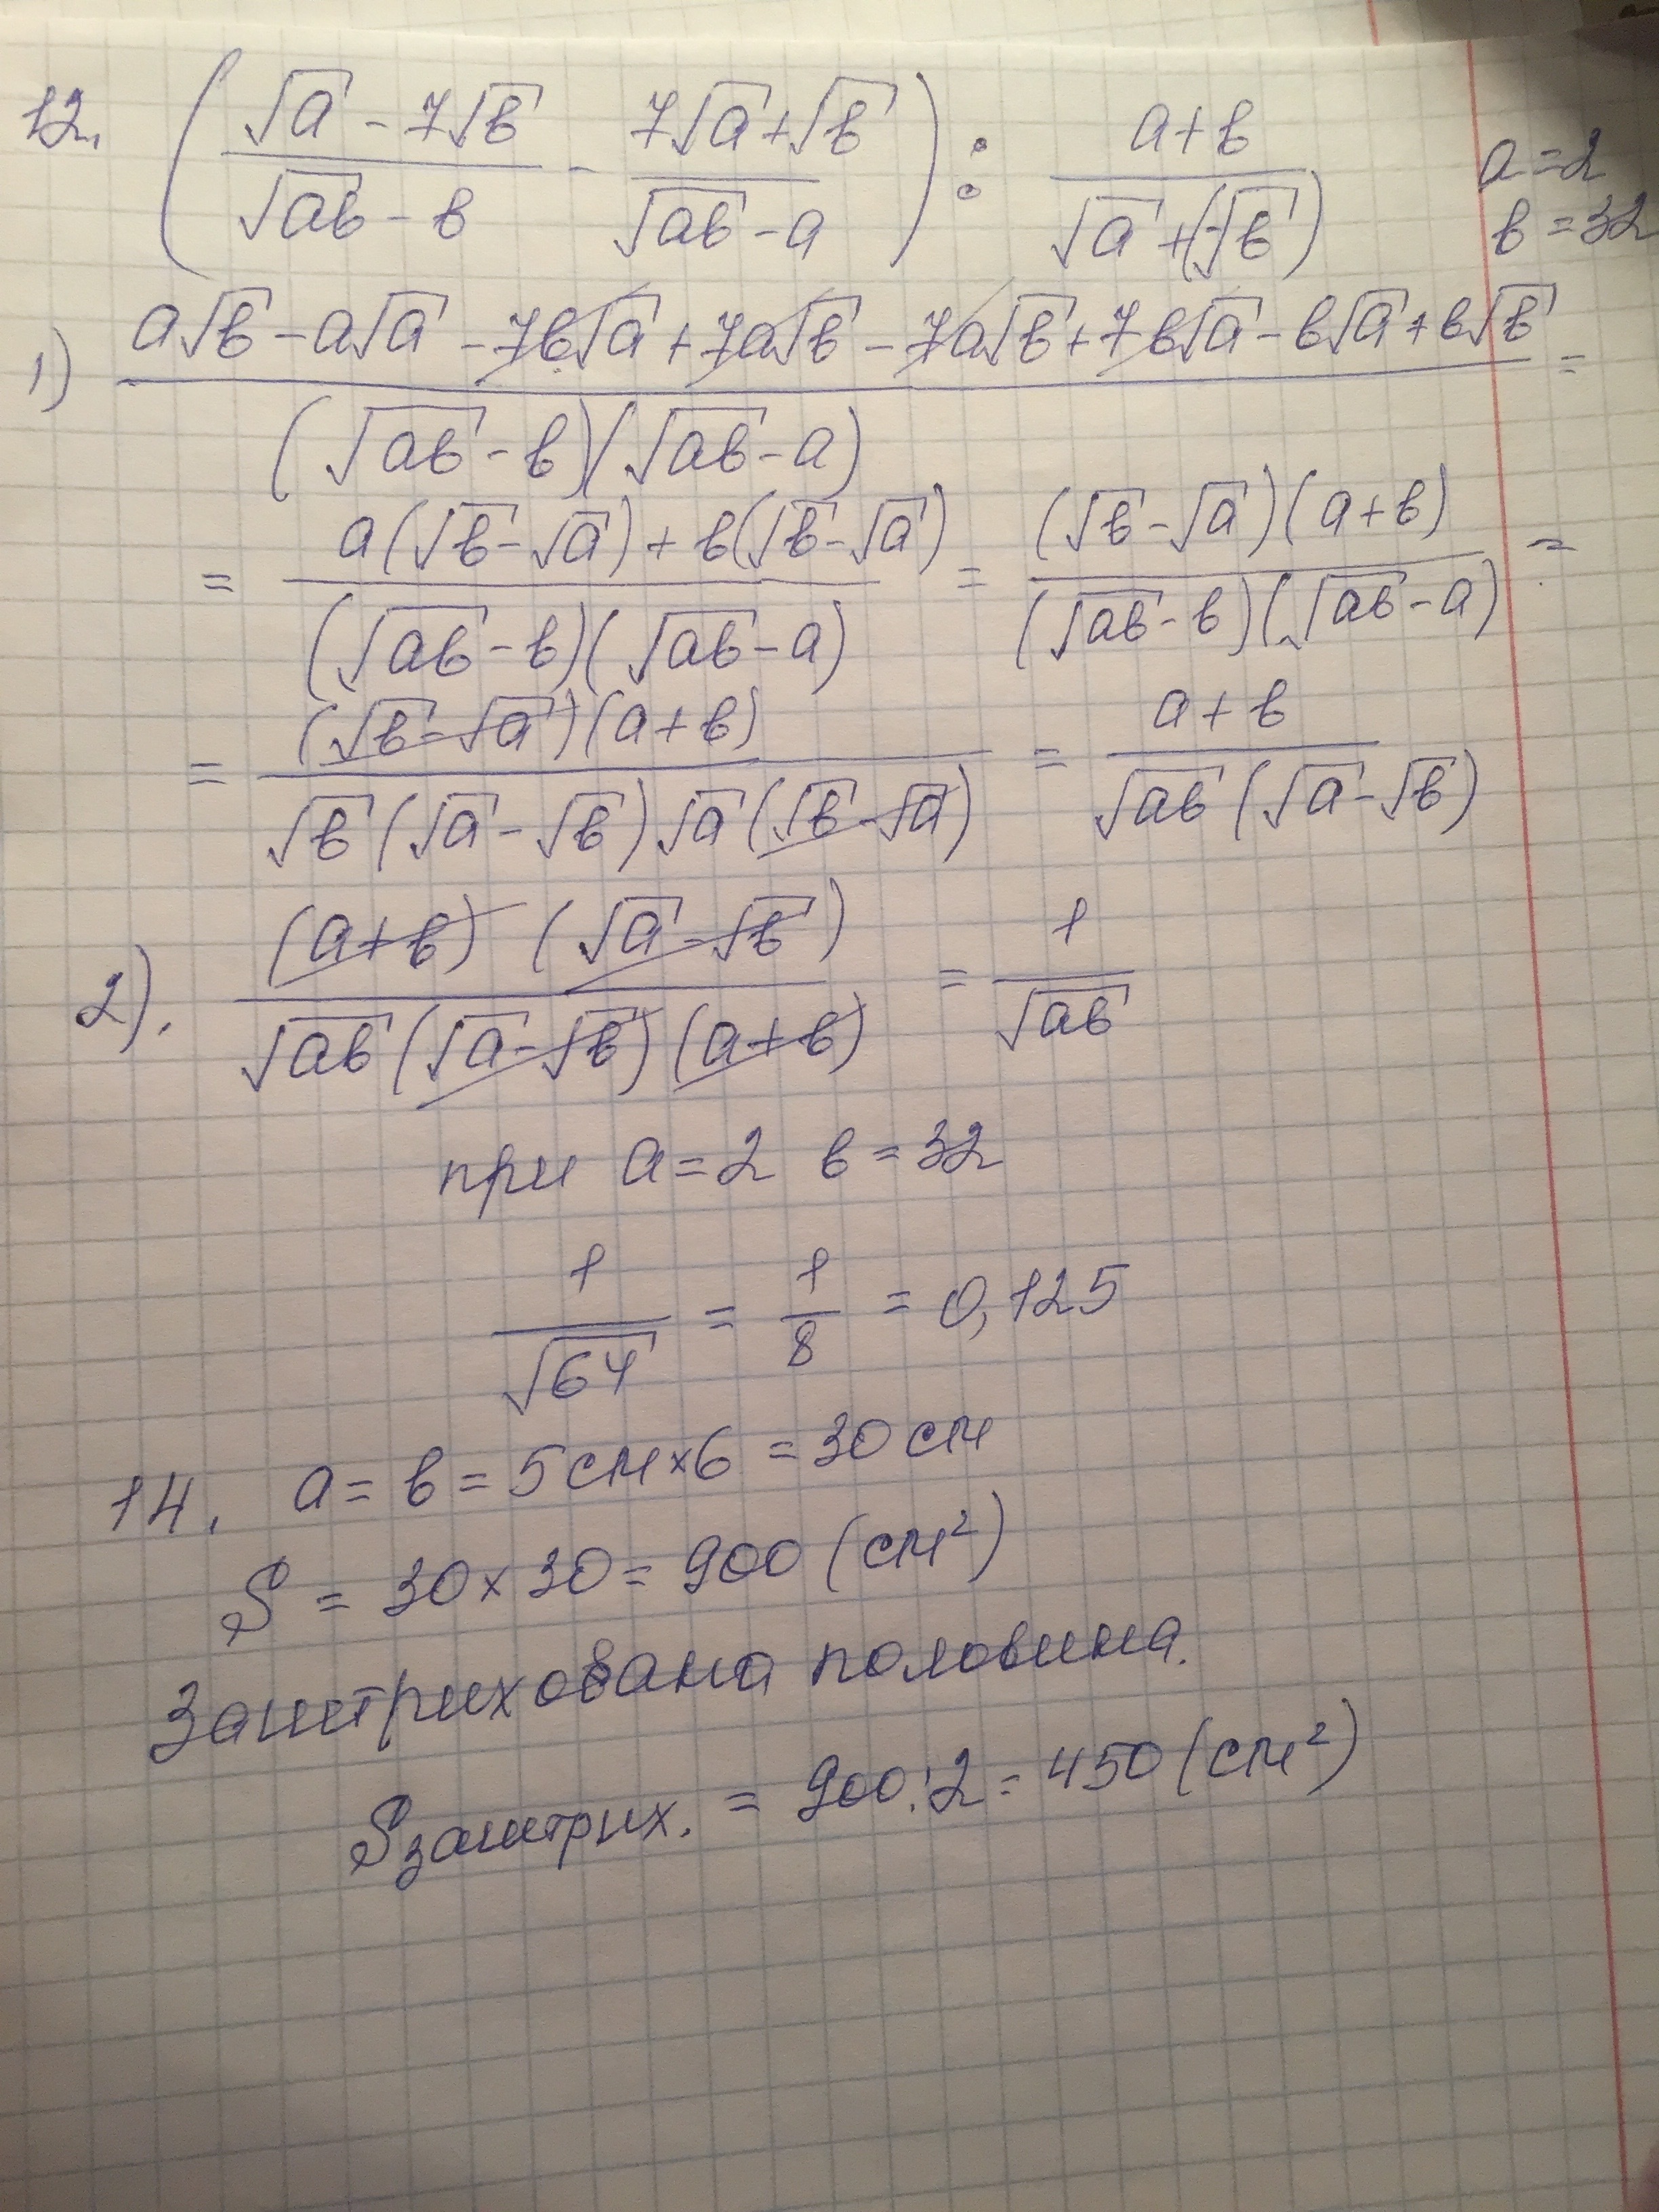 12. ( (√a - 7√b)/(√ab - b) - (7√a + √b)/(√ab - a) ) : (a+b)/(√a + (-√b)) a = 2
b = 32
1) (a√b - a√a - 7b√a + 7a√b - 7a√b + 7b√a - b√a + b√b)/((√ab - b)(√ab - a)) =
= (a(√b - √a) + b(√b - √a))/((√ab - b)(√ab - a)) = ((√b - √a)(a+b))/((√ab - b)(√ab - a)) =
= ((√b - √a)(a+b))/(√b(√a - √b)√a(√b - √a)) = (a+b)/(√ab(√a - √b))
2). ((a+b)(√a - √b))/(√ab(√a - √b)(a+b)) = 1/√ab
при a = 2 b = 32
1/√64 = 1/8 = 0,125
14. a = b = 5 см × 6 = 30 см
S = 30 × 30 = 900 (см²)
Заштрихована половина.
Sзаштрих. = 900:2 = 450 (см²)